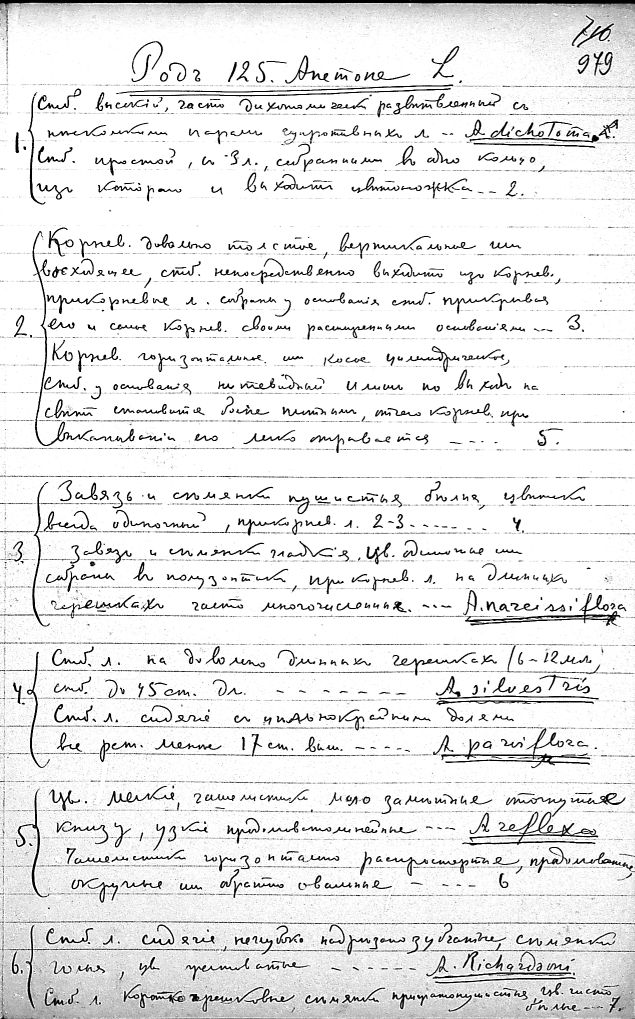 979
Родъ 125. Anemone L.
1. Стб. высокій, часто дихотомически развѣтвленный съ
нѣсколькими парами супротивныхъ л. -- A. dichotoma.
Стб. простой, съ 3 л., собранными въ одно кольцо,
изъ котораго и выходитъ цвѣтоножка -- 2.
2. Корнев. довольно толстое, вертикальное или
восходящее, стб. непосредственно выходитъ изъ корнев.,
прикорневые л. собраны у основанія стб. прикрывая
его и самое корнев. своими расширенными основаніями --- 3.
Корнев. горизонтальное или косое цилиндрическое,
стб. у основанія нитевидный и лишь по выходѣ на
свѣтъ становится болѣе , отчего корнев. при
выкапываніи его легко отрывается ---- 5.
3. Завязь и сѣмянки пушистыя бѣлыя, цвѣтки
всегда одиночный, прикорнев. л. 2-3 ------- 4.
Завязь и сѣмянки гладкія, цв. одиночные или
собраны въ полузонтики, прикорнев. л. на длинныхъ
черешкахъ часто многочисленные. --- A. narcissiflora
4. Стб. л. на довольно длинныхъ черешкахъ (6-12 мм.)
стб. до 45 cm. дл. ------- A. silvestris
Стб. л. сидячіе съ цѣльнокрайними долями
все раст. менѣе 17 cm. выш. ----- A. parviflora.
5. Цв. мелкіе, чашелистики мало замѣтные отогнутые
книзу, узкіе продолговатолинейные --- A. reflexa
Чашелистики горизонтально распростертые, продолговатые,
округлые или обратно овальные - --- 6
6. Стб. л. сидячіе, неглубоко надрѣзанозубчатые, сѣмянки
голыя, цв. желтоватые ------ A. Richardsoni.
Стб. л. короткочерешковые, сѣмянки прижатопушистыя цв. чисто
бѣлые --- 7.